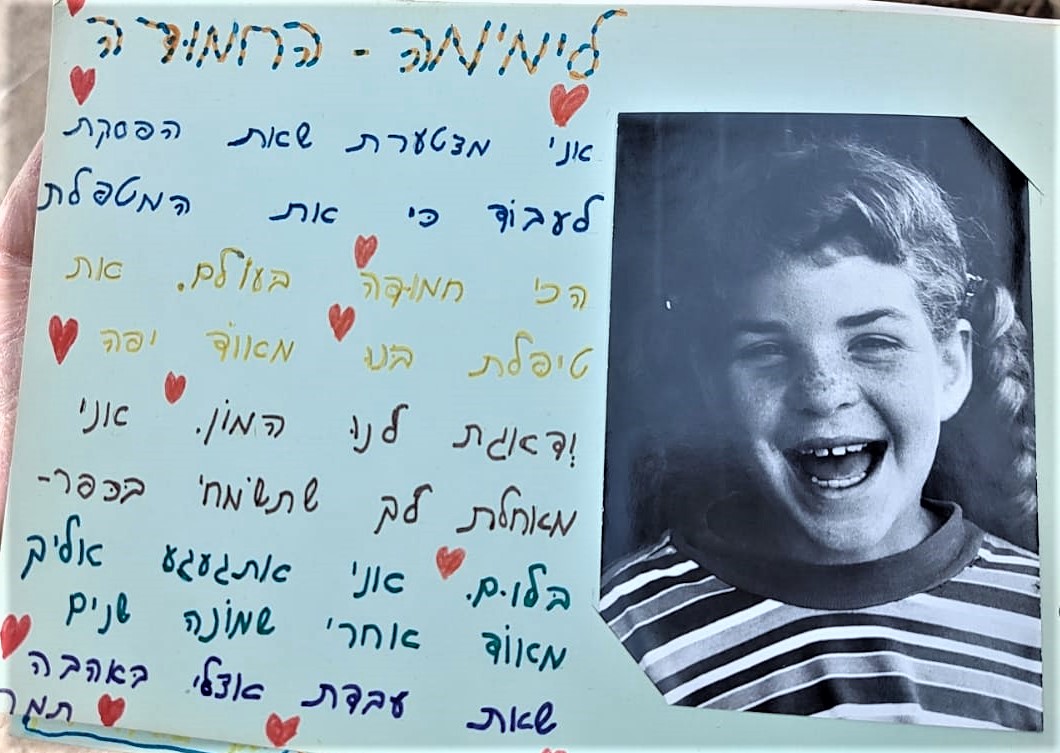 לימימה - החמודה
אני מצטערת שאת הפסקת
לעבוד כי את המטפלת
הכי חמודה בעולם. את
טיפלת בנו מאווד יפה
ודאגת לנו המון. אני
מאחלת לך שתשמחי בכפר-
בלום. אני אתגעגע אליך
מאווד אחרי שמונה שנים
שאת עבדת אצלי באהבה
תמר